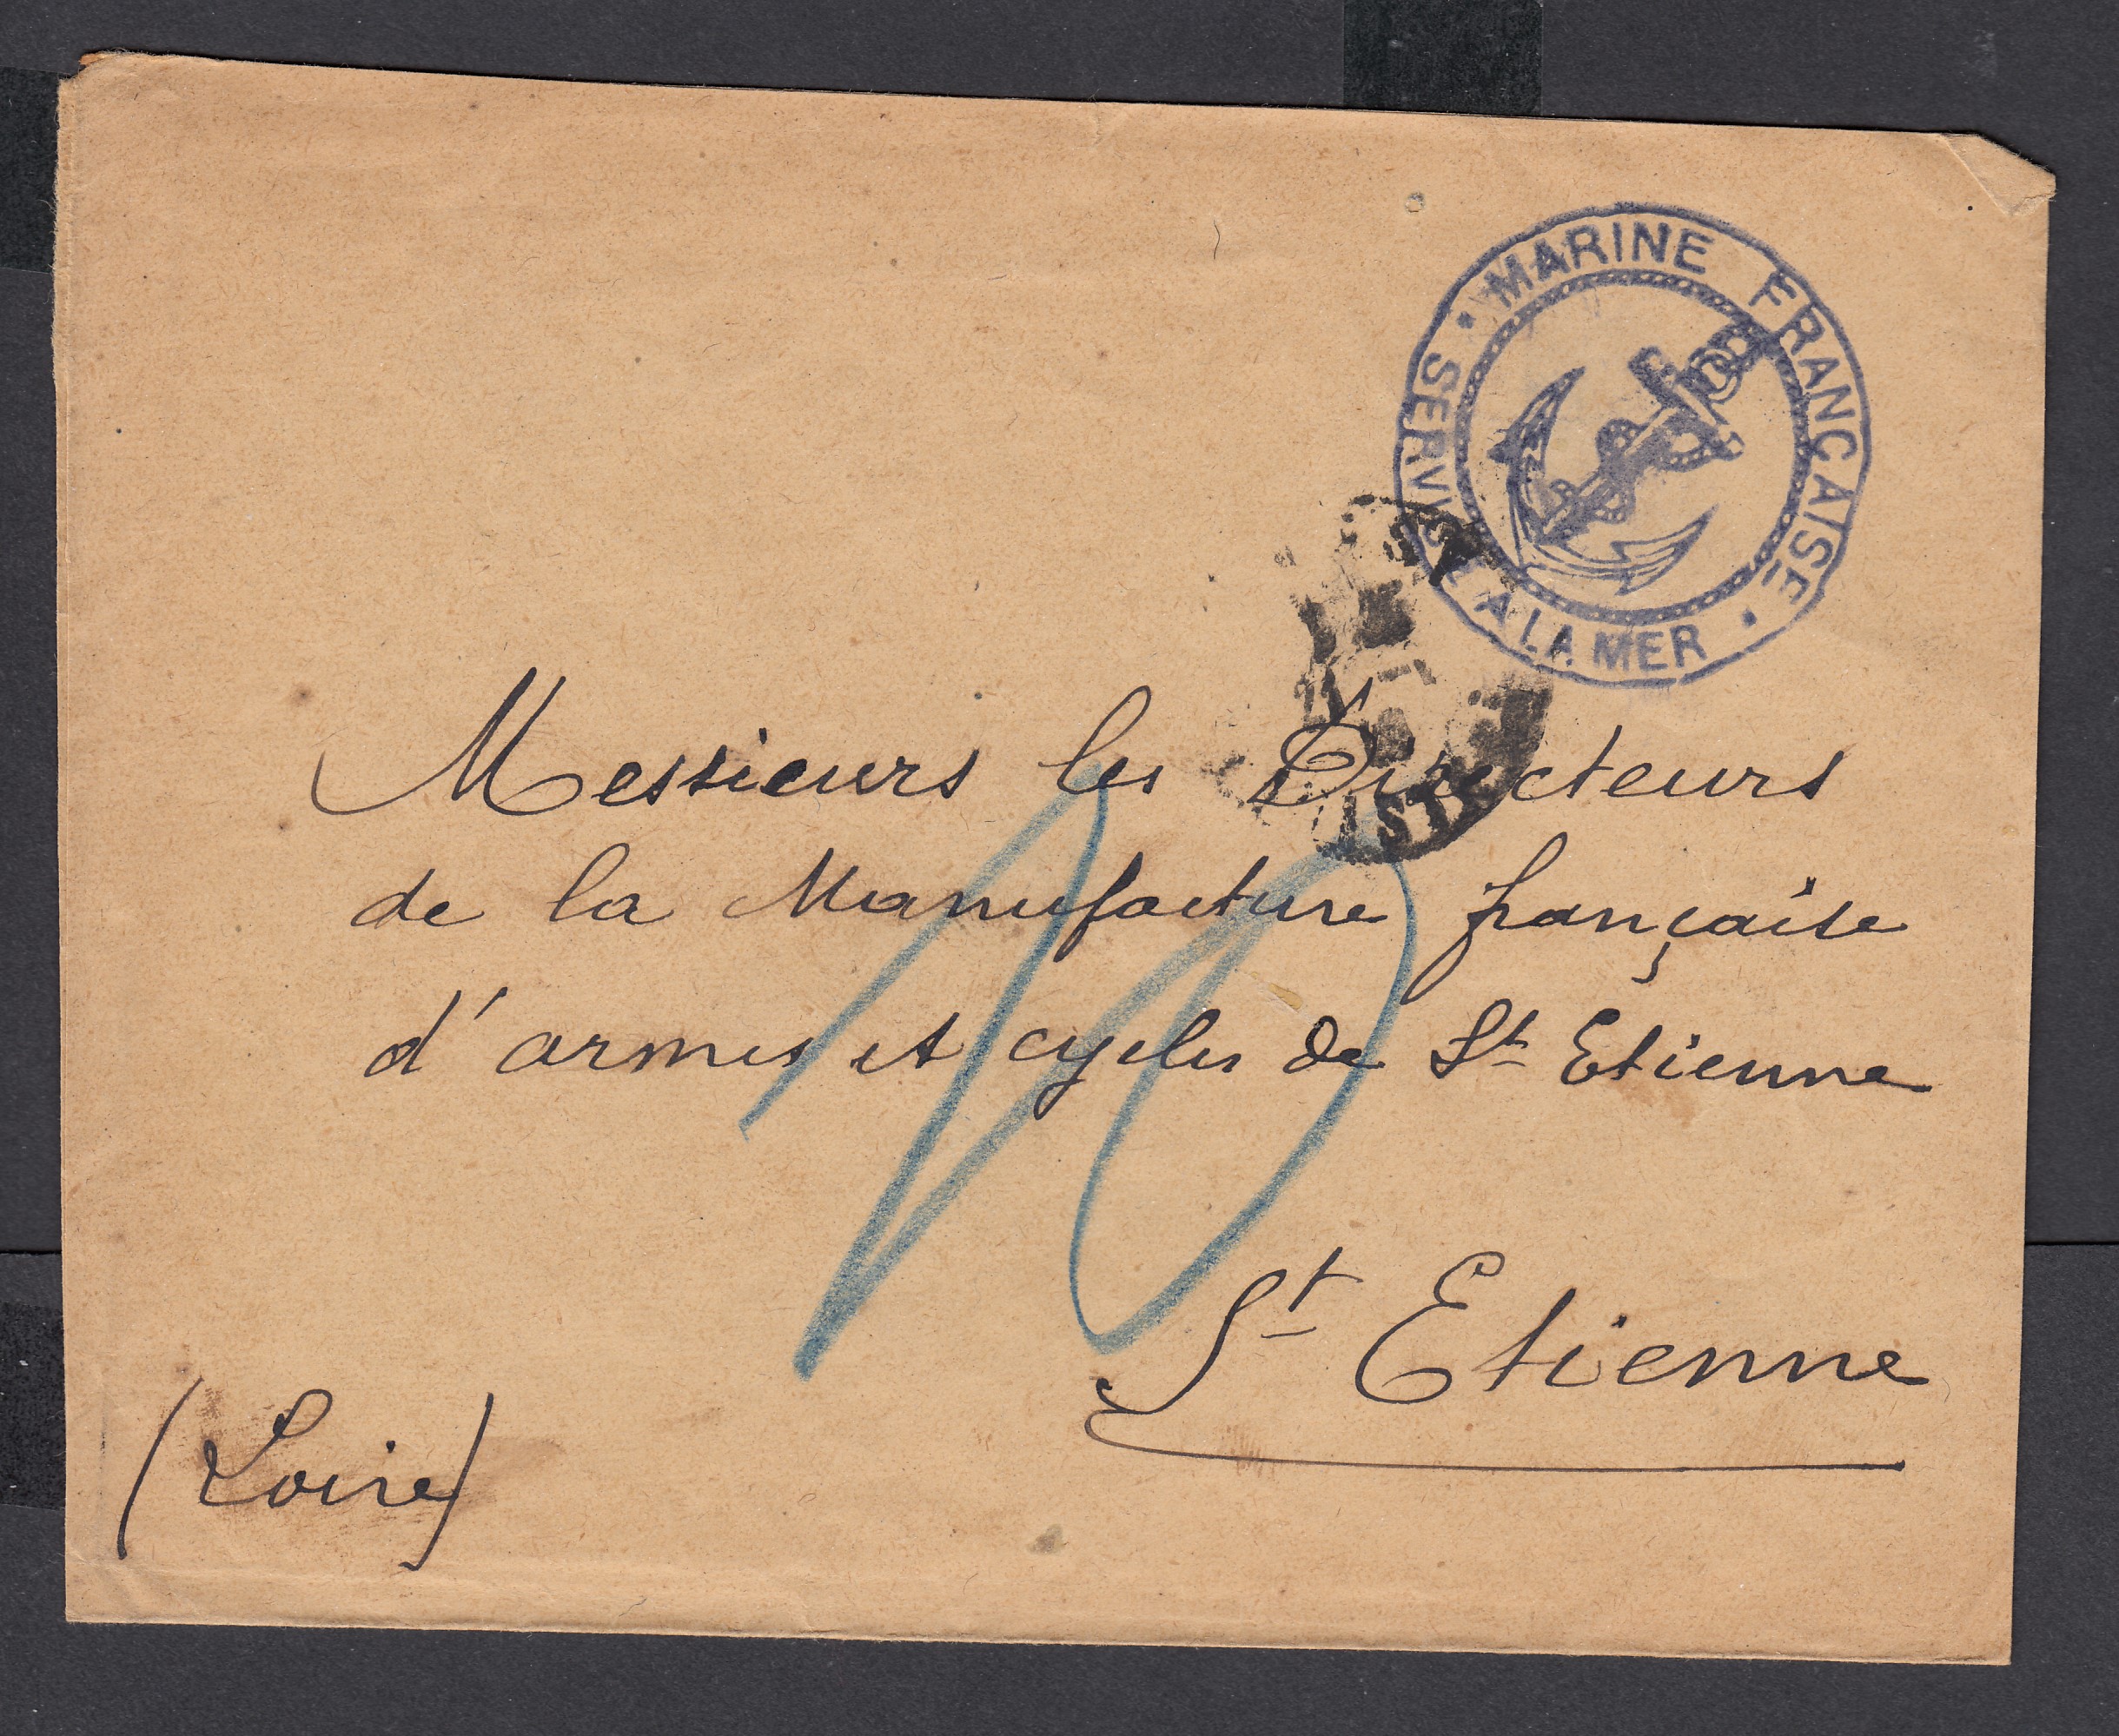 · MARINE FRANÇAISE ·
SERVICE A LA MER
Messieurs les Directeurs
de la Manufacture française
d'armes et cycles de St Etienne
10
St Etienne
(Loire)